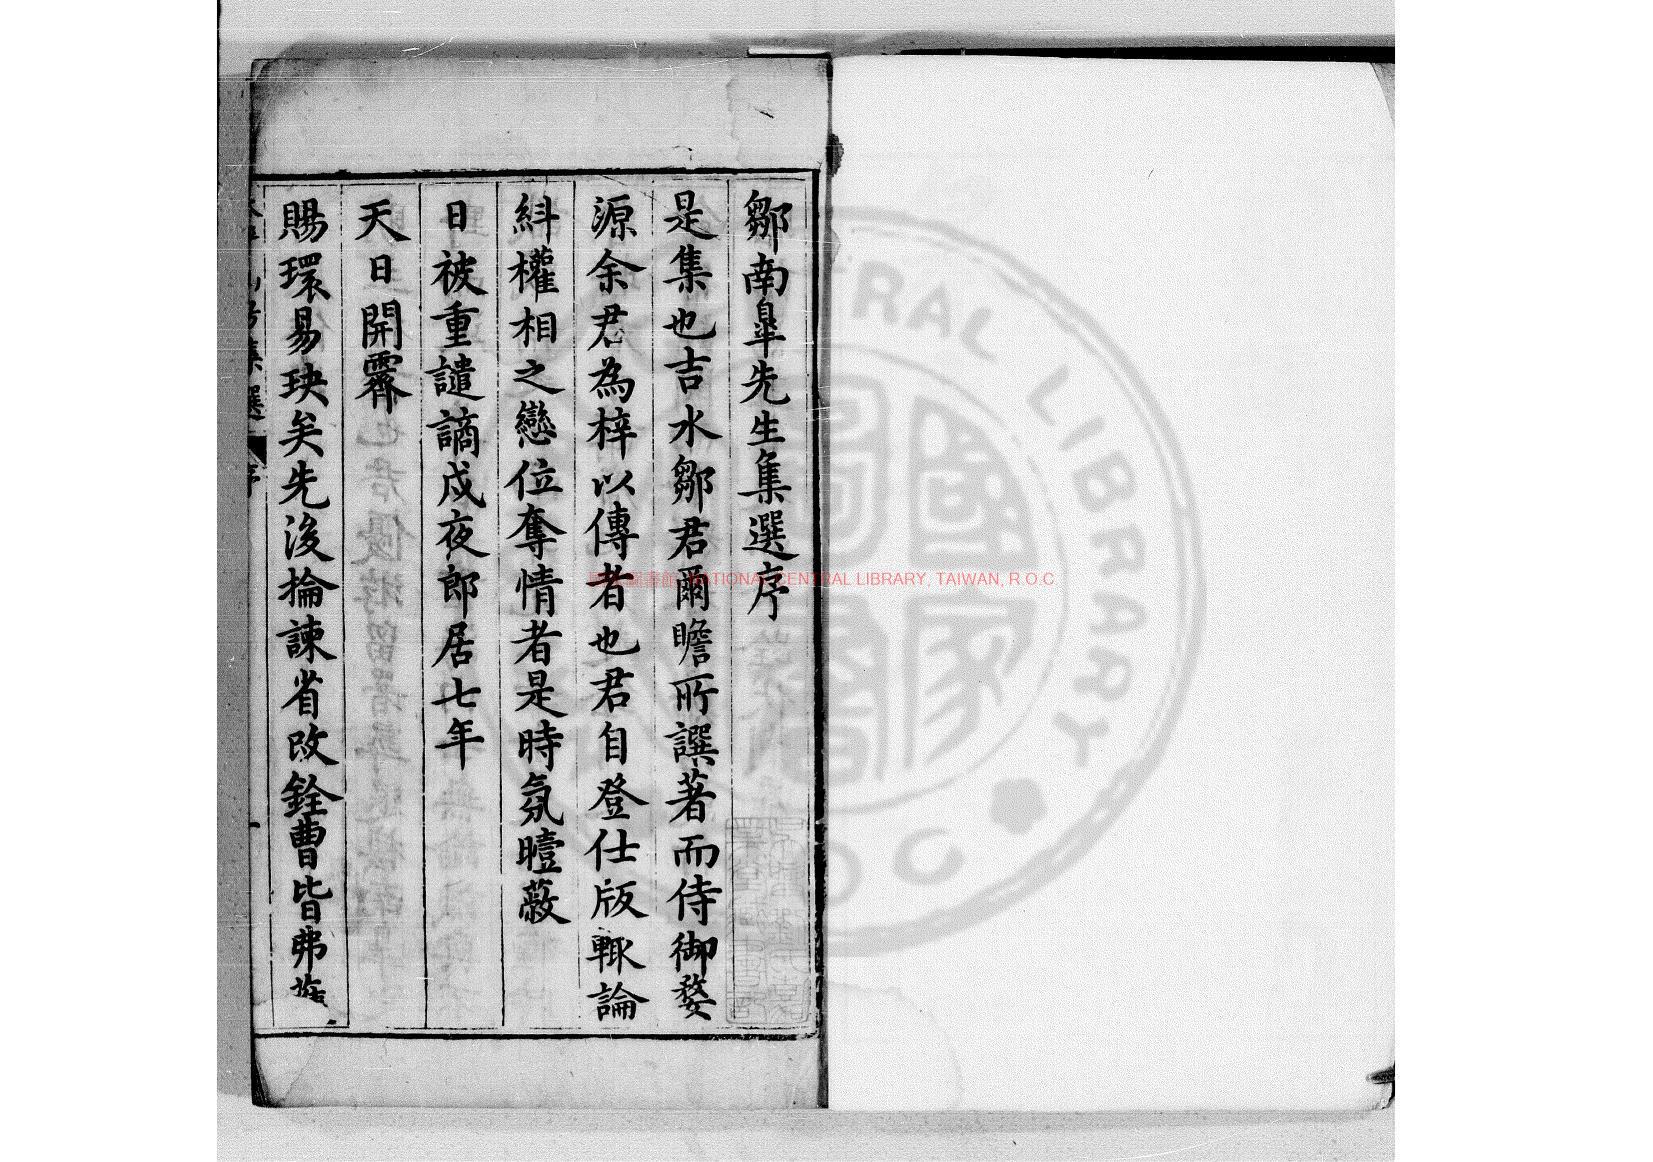 鄒南臯先生集選序
是集也吉水鄒君爾瞻所譔著而侍御婺
源余君為梓以傳者也君自登仕版輒論
糾權相之戀位奪情者是時氛曀蔽
日被重譴謫戍夜郎居七年
天日開霽
賜環易玦矣先後掄諫省改銓曹皆弗
集選
序
NATIONAL CENTRAL LIBRARY, TAIWAN, R.O.C